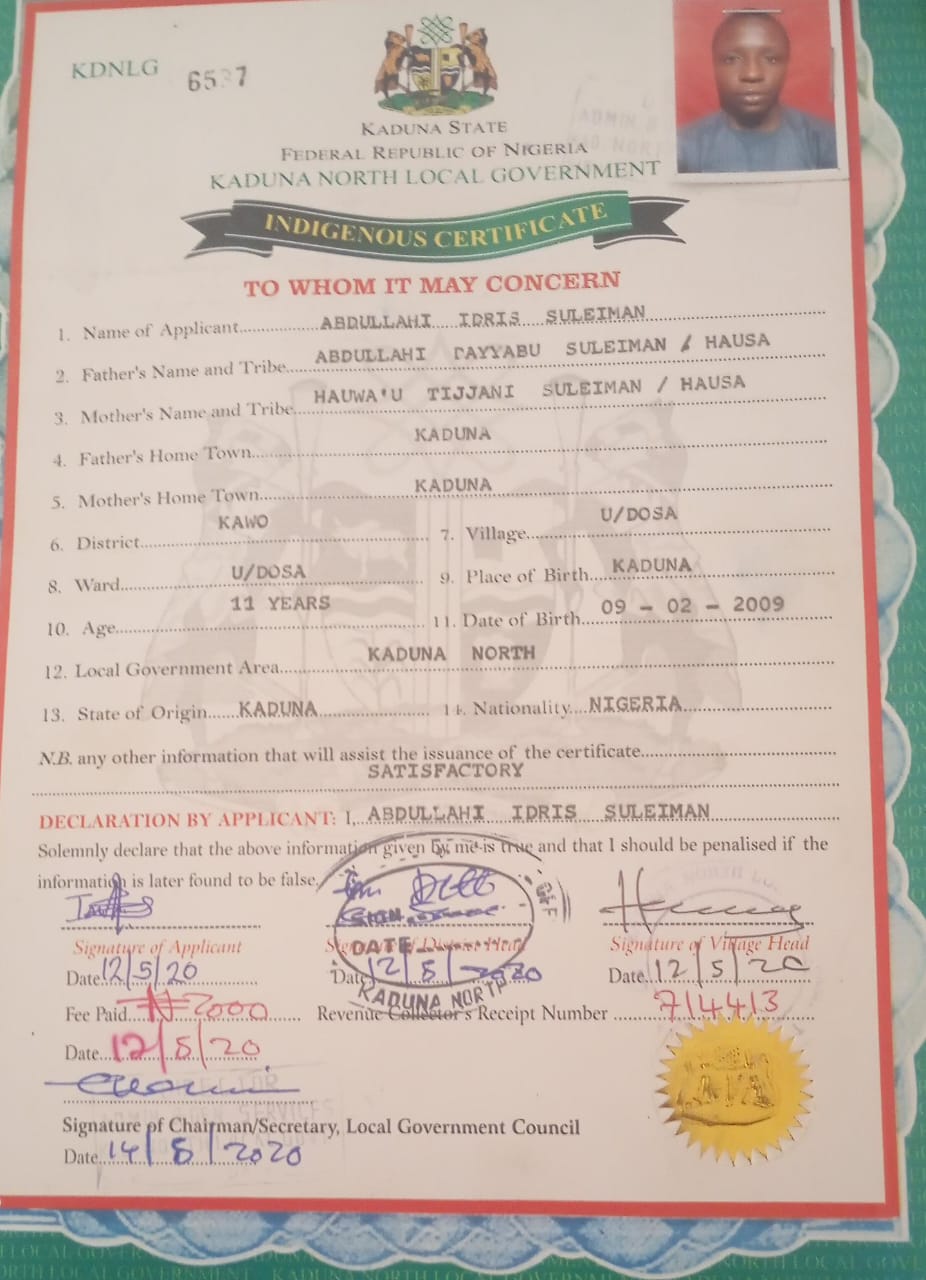 KDNLG 6537
KADUNA STATE
FEDERAL REPUBLIC OF NIGERIA
KADUNA NORTH LOCAL GOVERNMENT
INDIGENOUS CERTIFICATE
TO WHOM IT MAY CONCERN
1. Name of Applicant ABDULLAHI IDRIS SULEIMAN
2. Father's Name and Tribe ABDULLAHI DAYYABU SULEIMAN / HAUSA
3. Mother's Name and Tribe HAUWA'U TIJJANI SULEIMAN / HAUSA
4. Father's Home Town KADUNA
5. Mother's Home Town KADUNA
6. District KAWO 7. Village U/DOSA
8. Ward U/DOSA 9. Place of Birth KADUNA
10. Age 11 YEARS 11. Date of Birth 09 - 02 - 2009
12. Local Government Area KADUNA NORTH
13. State of Origin KADUNA 14. Nationality NIGERIA
N.B. any other information that will assist the issuance of the certificate
SATISFACTORY
DECLARATION BY APPLICANT: I, ABDULLAHI IDRIS SULEIMAN
Solemnly declare that the above information given by me is true and that I should be penalised if the
information is later found to be false.
SIGN
DATE
KADUNA NORTH
Signature of Applicant Signature of District Head Signature of Village Head
Date 12/5/20 Date 12/5/2020 Date 12/5/20
Fee Paid ₦2000 Revenue Collector's Receipt Number 714413
Date 12/5/20
Signature of Chairman/Secretary, Local Government Council
Date 14/5/2020